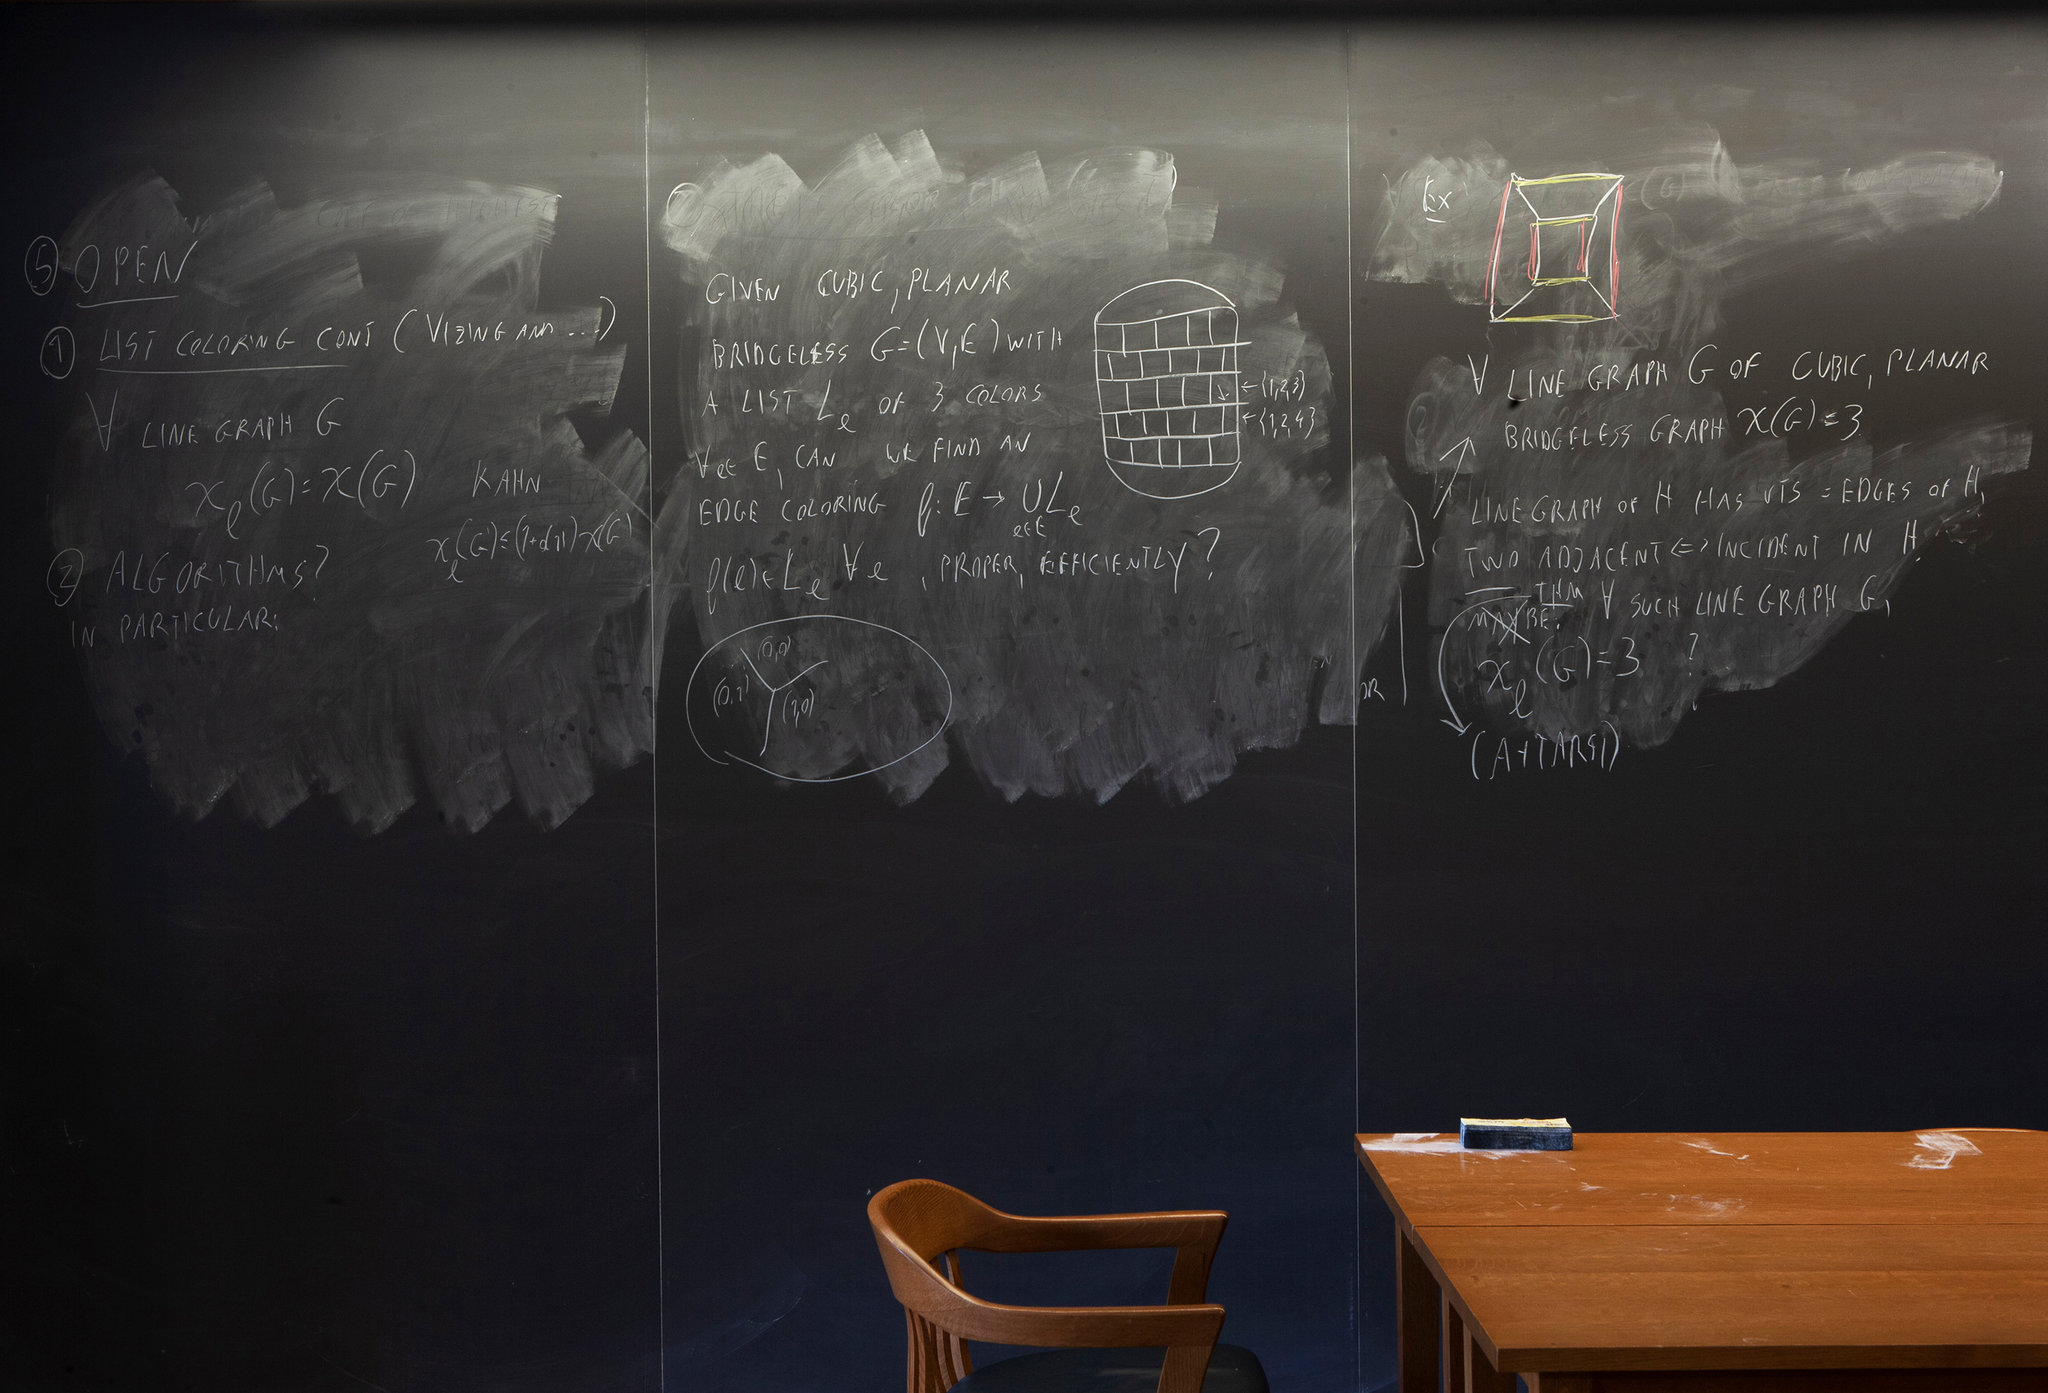 ⑤ OPEN
① LIST COLORING CONJ (VIZING AND ...)
∀ LINE GRAPH G
χ_ℓ(G) = χ(G) KAHN
χ_ℓ(G) ≤ (1+o(1)) χ(G)
② ALGORITHMS?
IN PARTICULAR:
GIVEN CUBIC, PLANAR
BRIDGELESS G=(V,E) WITH
A LIST L_e OF 3 COLORS
∀e∈E, CAN WE FIND AN
EDGE COLORING f: E → ∪L_e
e∈E
f(e)∈L_e ∀e, PROPER, EFFICIENTLY?
←{1,2,3}
←{1,2,4}
(0,0)
(0,1)
(1,0)
Ex
∀ LINE GRAPH G OF CUBIC, PLANAR
BRIDGELESS GRAPH χ(G)=3
LINE GRAPH OF H HAS VTS = EDGES OF H,
TWO ADJACENT <=> INCIDENT IN H.
MAYBE: THM ∀ SUCH LINE GRAPH G,
χ_ℓ(G)=3 ?
(A+TARSI)
OR